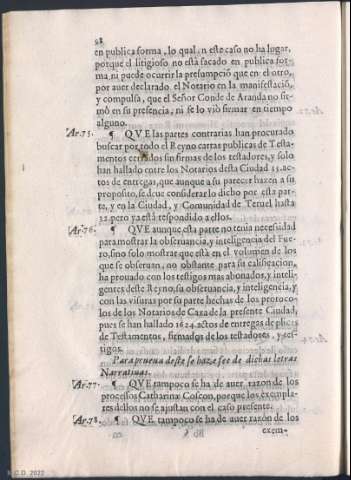 98
en publica forma, lo qual, n este caso no ha lugar,
porque el litigioso no està sacado en publica for
ma, ni puede ocurrir la presumpció que en el otro,
por auer declarado el Notario en la manifestació,
y compulsa, que el Señor Conde de Aranda no fir
mò en su presencia, ni se lo viò firmar en tiempo
alguno.
Ar.75. ¶ QVE las partes contrarias han procurado
buscar por todo el Reyno cartas publicas de Testa-
mentos cerrados sin firmas de los testadores, y solo
han hallado entre los Notarios desta Ciudad 15. ac-
tos de entregas, que aunque a su parecer hazen a su
proposito, se deue considerar lo dicho por esta par-
te, y en la Ciudad, y Comunidad de Teruel hasta
32. pero ya està respondido a ellos.
Ar.76. ¶ QVE aunque esta parte no tenia necessidad
para mostrar la obseruancia, y inteligencia del Fue-
ro, sino solo mostrar que està en el volumen de los
que se obseruan, no obstante para su calificacion,
ha prouado con los testigos mas abonados, y inteli-
gentes deste Reyno, su obseruancia, y inteligencia, y
con las visuras por su parte hechas de los protoco-
los de los Notarios de Caxa de la presente Ciudad,
pues se han hallado 1624. actos de entregas de plicas
de Testamentos, firmados de los testadores, y tes-
tigos.
Para prueua deste se haze fee de dichas letras
Narratiuas.
Ar.77. ¶ QVE tampoco se ha de auer razon de los
processos Catharinæ Coscon, porque los exempla-
res dellos no se ajustan con el caso presente.
Ar.78. ¶ QVE tampoco se ha de auer razón de los
Bb exem-
S.C.D. 2022